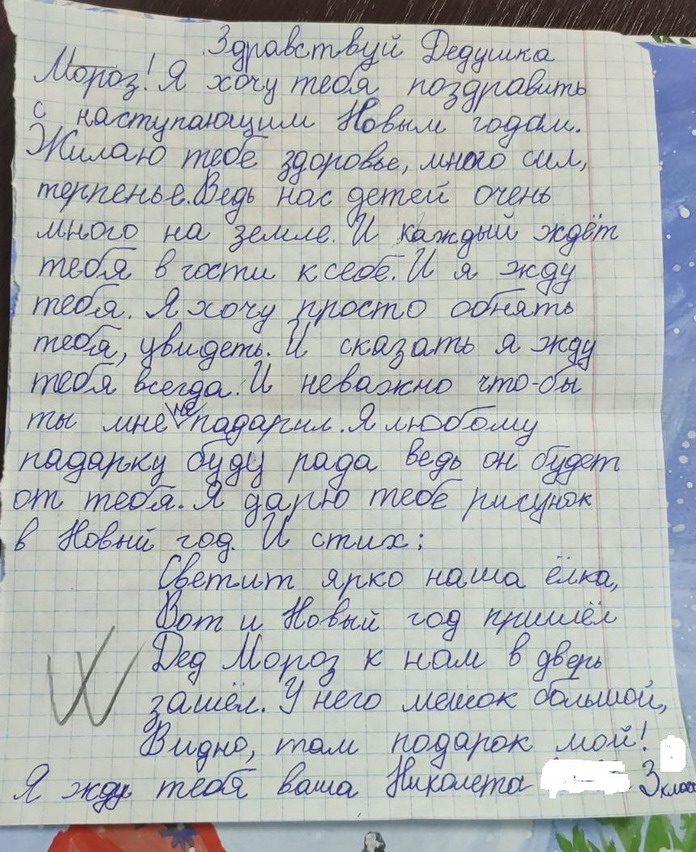 Здравствуй Дедушка
Мороз! Я хочу тебя поздравить
с наступающим Новым годам.
Жилаю тебе здоровье, много сил,
терпенье. Ведь нас детей очень
много на земле. И каждый ждёт
тебя в гости к себе. И я жду
тебя. Я хочу просто обнять
тебя, увидеть. И сказать я жду
тебя всегда. И неважно что-бы
ты мне не падарил. Я любому
падарку буду рада ведь он будет
от тебя. Я дарю тебе рисунок
в Новый год. И стих:
Светит ярко наша ёлка,
Вот и Новый год пришёл
Дед Мороз к нам в дверь
зашёл. У него мешок большой,
Видно, там подарок мой!
Я жду тебя ваша Николета 3 класс